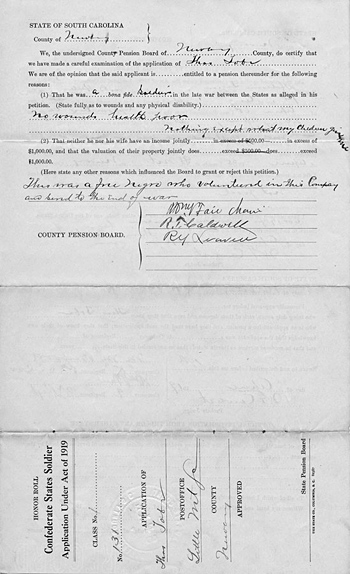 STATE OF SOUTH CAROLINA
County of Newberry
We, the undersigned County Pension Board of Newberry County, do certify that
we have made a careful examination of the application of Thos Tobe
We are of the opinion that the said applicant is entitled to a pension thereunder for the following
reasons:
(1) That he was a bona fide soldier in the late war between the States as alleged in his
petition. (State fully as to wounds and any physical disability.)
No wounds health poor
Nothing except what my Children give me
(2) That neither he nor his wife have an income jointly in excess of $600.00 in excess of
$1,000.00, and that the valuation of their property jointly does exceed $500.00 does exceed
$1,000.00
(Here state any other reasons which influenced the Board to grant or reject this petition.)
This was a free Negro who volunteered in this Company
and served to the end of war
Fair Chmn
R. T. Caldwell
COUNTY PENSION BOARD.
R Y Leavell
HONOR ROLL
Confederate States Soldier
Application Under Act of 1919
CLASS No.
No. 131
APPLICATION OF
Thos Tobe
POSTOFFICE
COUNTY
Newberry
APPROVED
State Pension Board